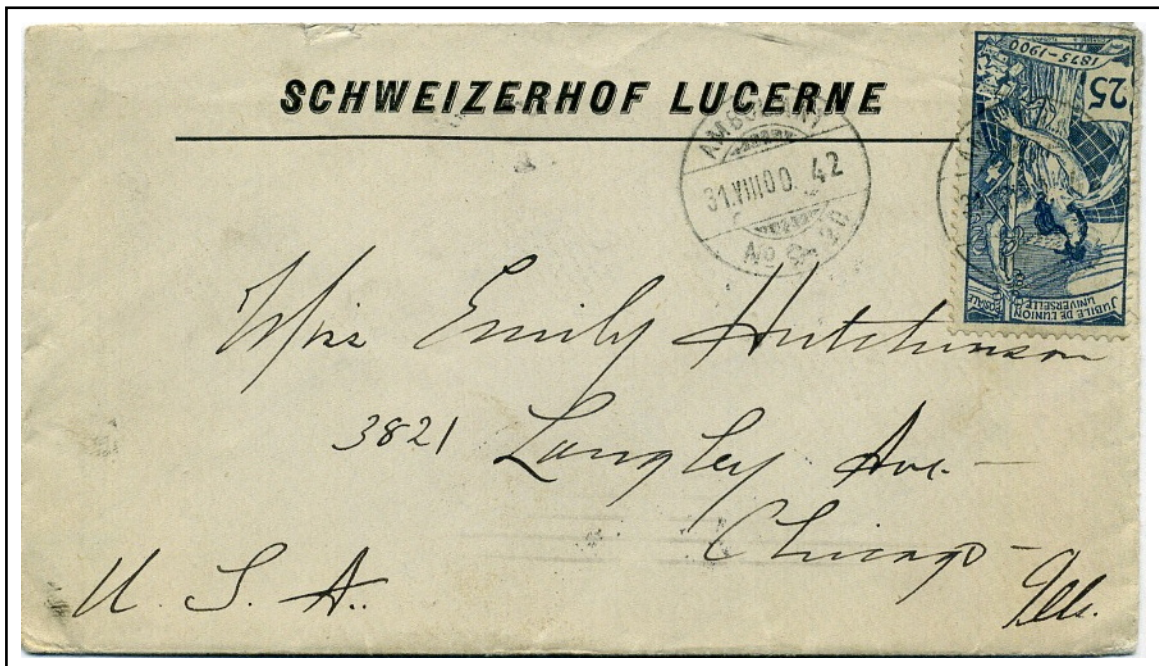 SCHWEIZERHOF LUCERNE
AMBULANT
31.VIII00. 42
No
25
1875-1900
JUBILÉ DE L'UNION
POSTALE
UNIVERSELLE
Miss Emily Hutchinson
3821 Langley Ave.
Chicago
Ills.
U. S. A.